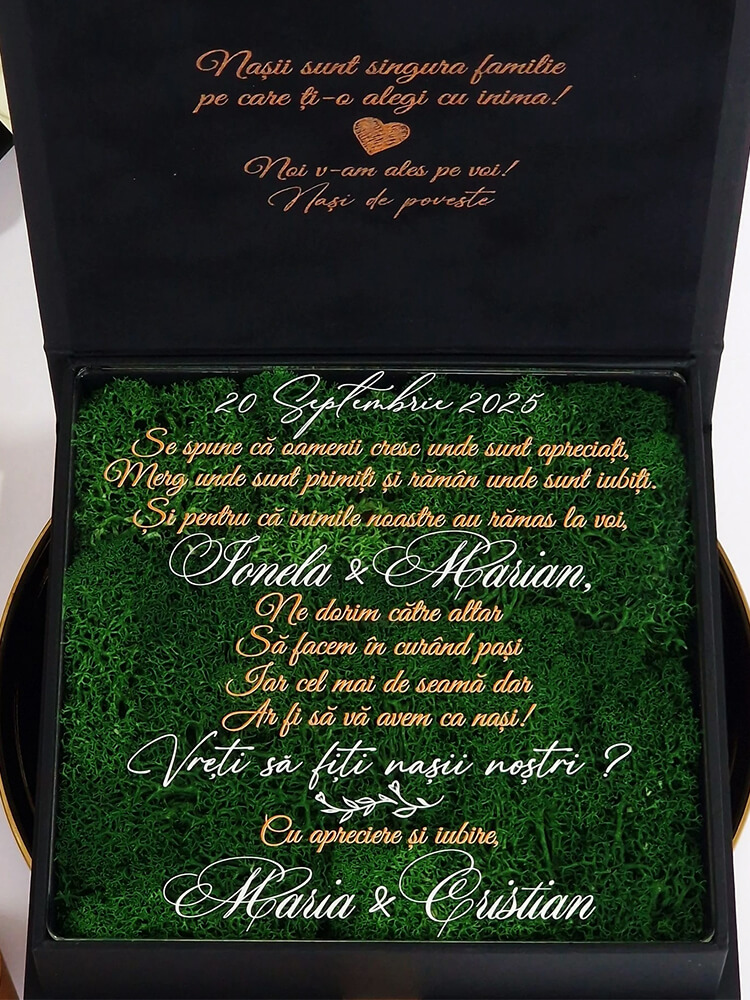 Nașii sunt singura familie
pe care ți-o alegi cu inima!
Noi v-am ales pe voi!
Nași de poveste
20 Septembrie 2025
Se spune că oamenii cresc unde sunt apreciați,
Merg unde sunt primiți și rămân unde sunt iubiți.
Și pentru că inimile noastre au rămas la voi,
Ionela & Marian,
Ne dorim către altar
Să facem în curând pași
Iar cel mai de seamă dar
Ar fi să vă avem ca nași!
Vreți să fiți nașii noștri ?
Cu apreciere și iubire,
Maria & Cristian